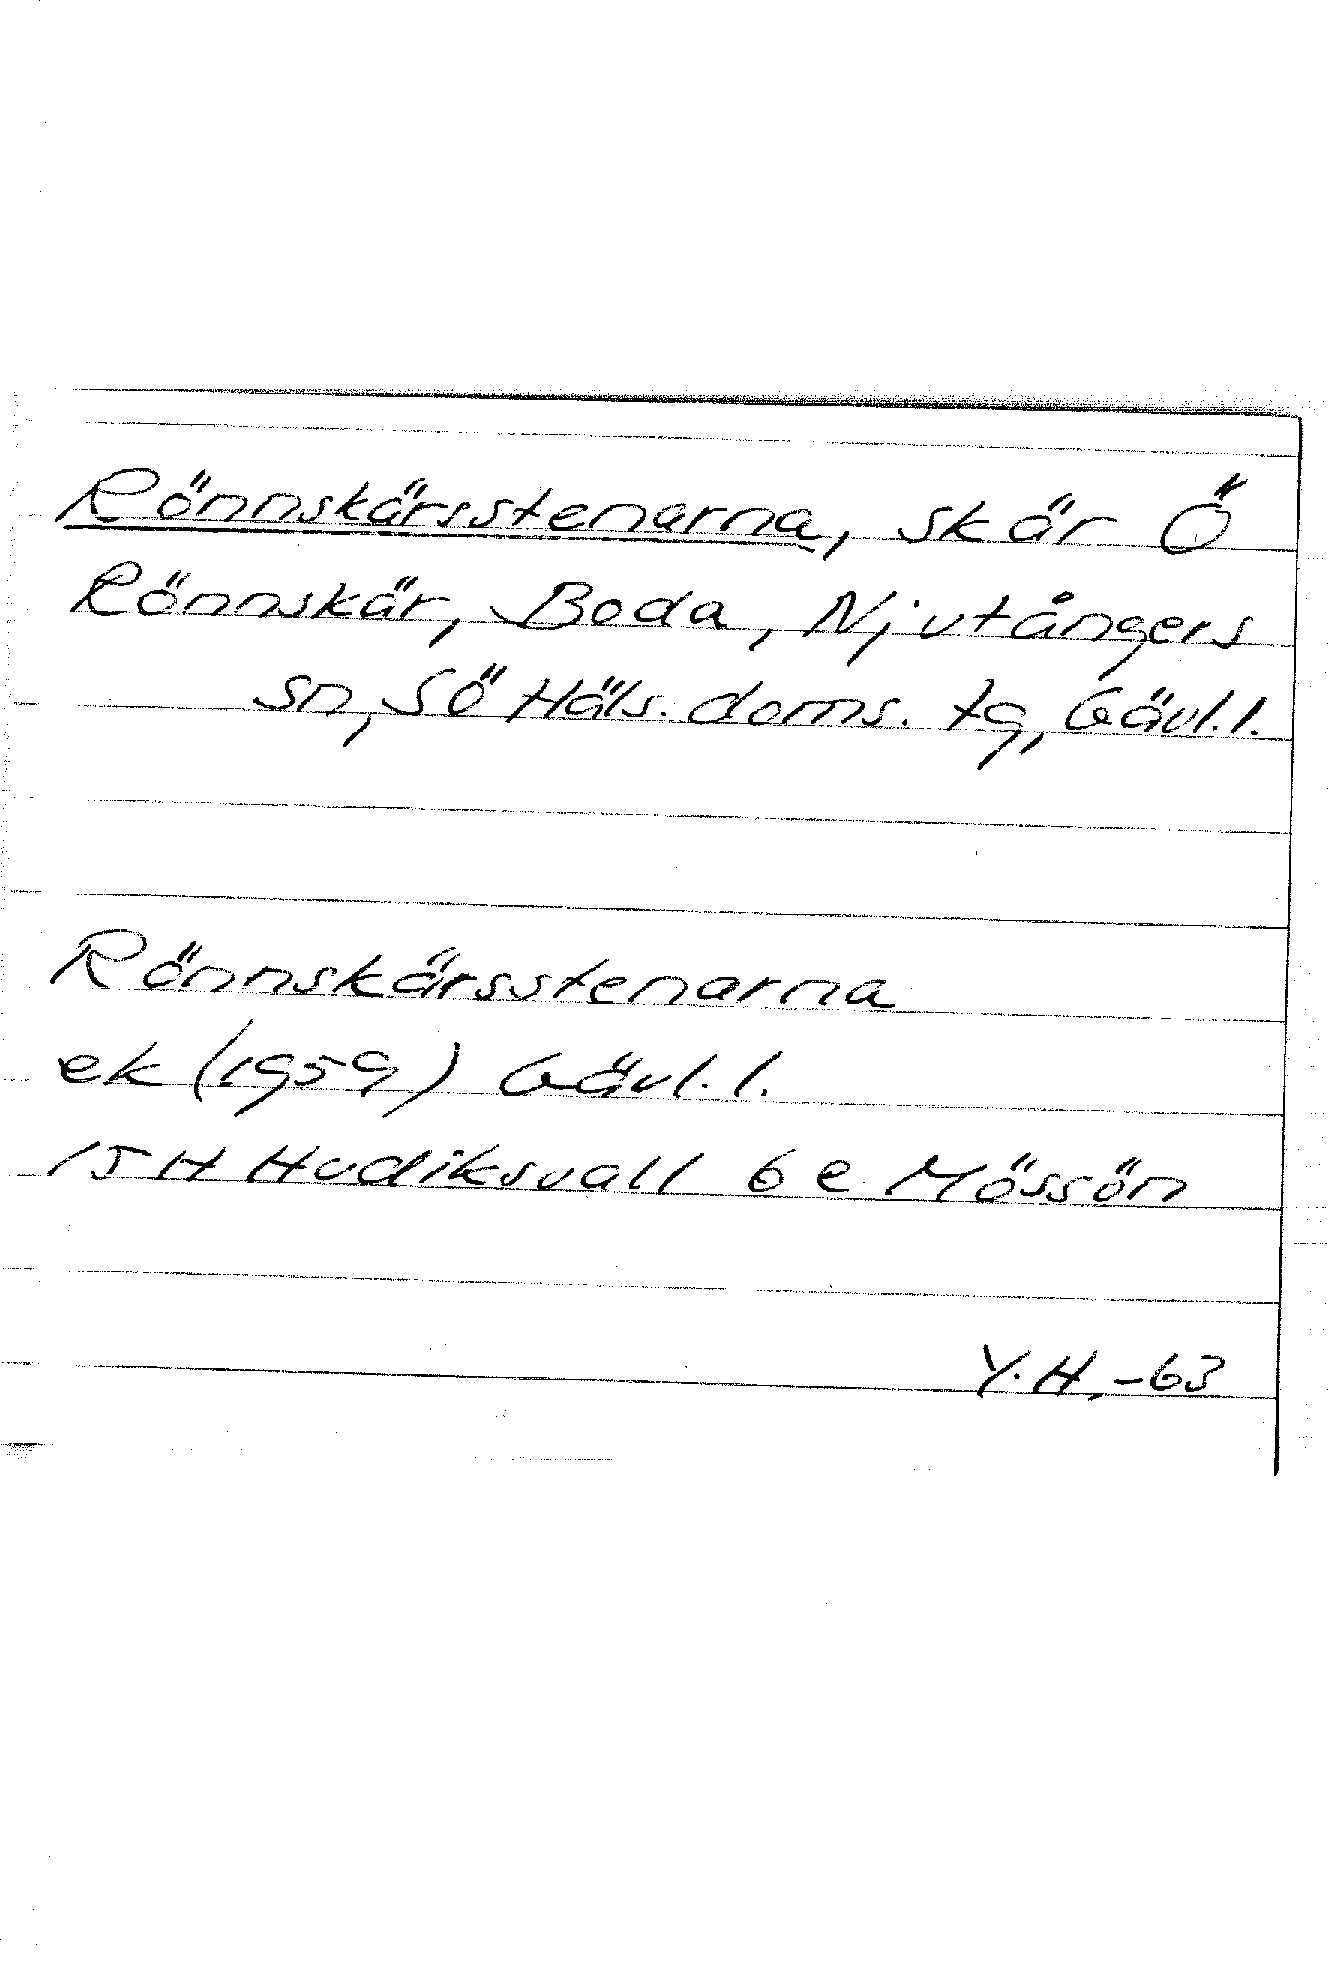 Rönnskärsstenarna, skär Ö
Rönnskär, Boda, Njutångers
sn, SÖ Häls. doms. tg, Gävl.l.
Rönnskärsstenarna
ek (1959) Gävl.l.
15H Hudiksvall 6 e Mössön
Y.H, -63